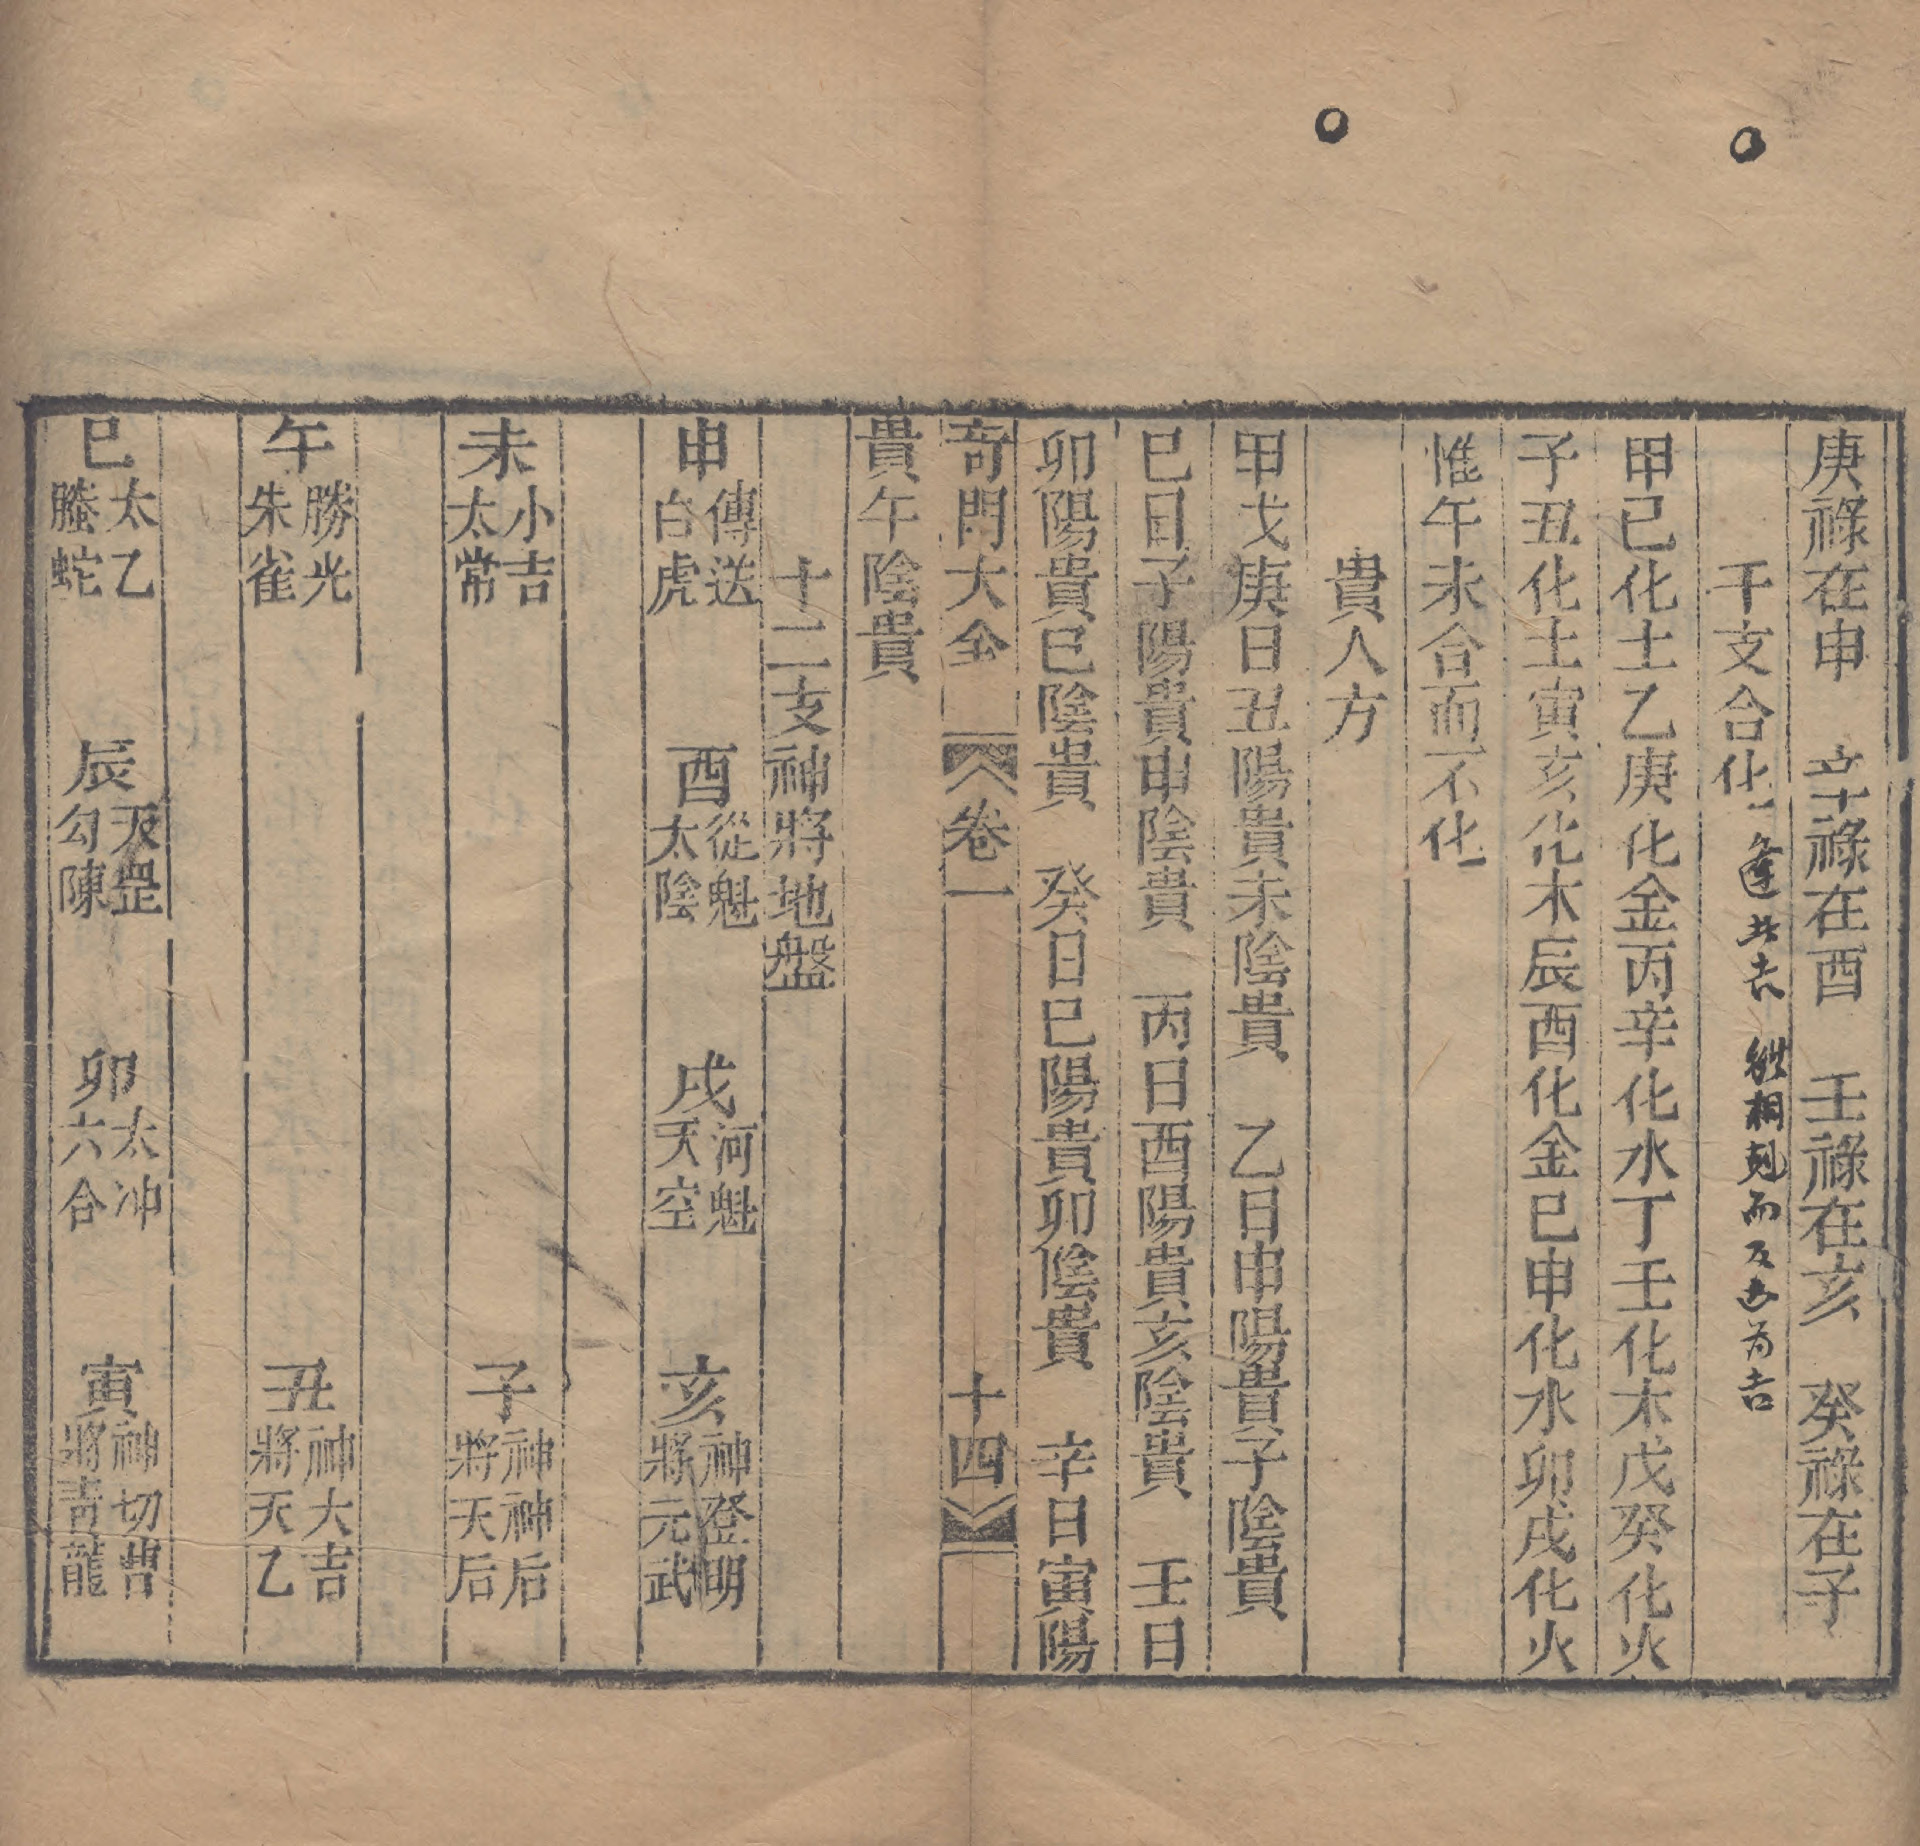 庚祿在申　辛祿在酉　壬祿在亥　癸祿在子
干支合化　逢此吉　相剋而反为吉
甲已化土乙庚化金丙辛化水丁壬化木戊癸化火
子丑化土寅亥化木辰酉化金巳申化水卯戌化火
惟午未合而不化
貴人方
甲戊庚日丑陽貴未陰貴　乙日申陽貴子陰貴
已日子陽貴申陰貴　丙日酉陽貴亥陰貴　壬日
卯陽貴巳陰貴　癸日巳陽貴卯陰貴　辛日寅陽
奇門大全　卷一　十四
貴午陰貴
十二支神將地盤
申傳送白虎　酉從魁太陰　戌河魁天空　亥神登明將元武
未小吉太常　子神神后將天后
午勝光朱雀　丑神大吉將天乙
巳太乙螣蛇　辰天罡勾陳　卯太冲六合　寅神切曹將青龍